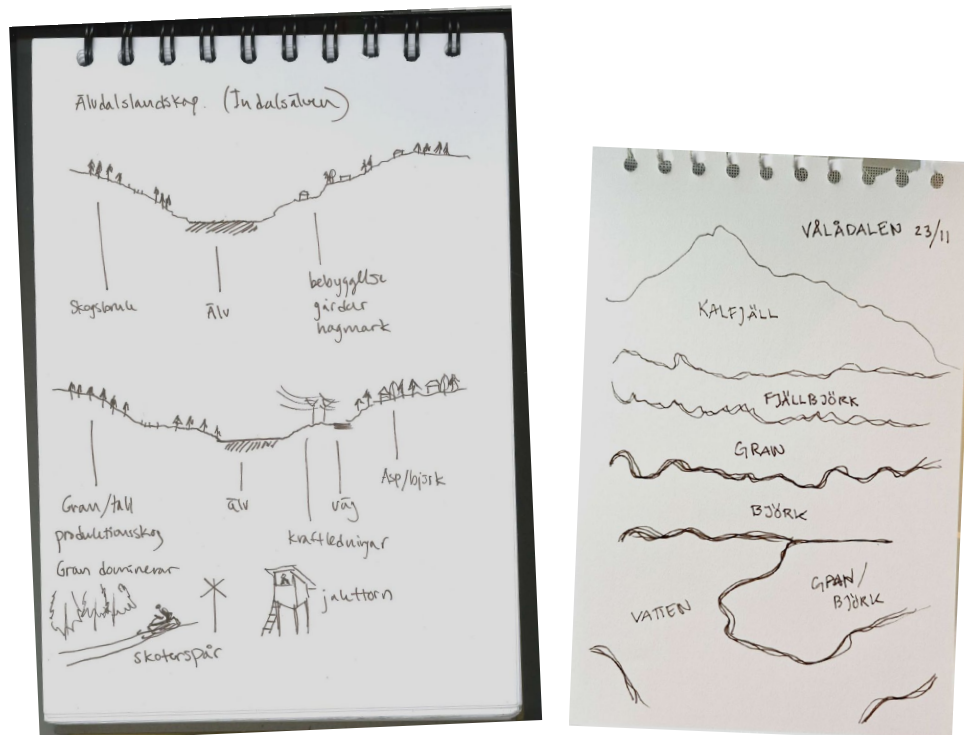 Älvdalslandskap. (Indalsälven)
Skogsbruk
Älv
bebyggelse
gårdar
hagmark
Gran/tall
produktionskog
Gran dominerar
älv
väg
kraftledningar
Asp/björk
skoterspår
jakttorn
VÅLÅDALEN 23/11
KALFJÄLL
FJÄLLBJÖRK
GRAN
BJÖRK
VATTEN
GRAN/
BJÖRK